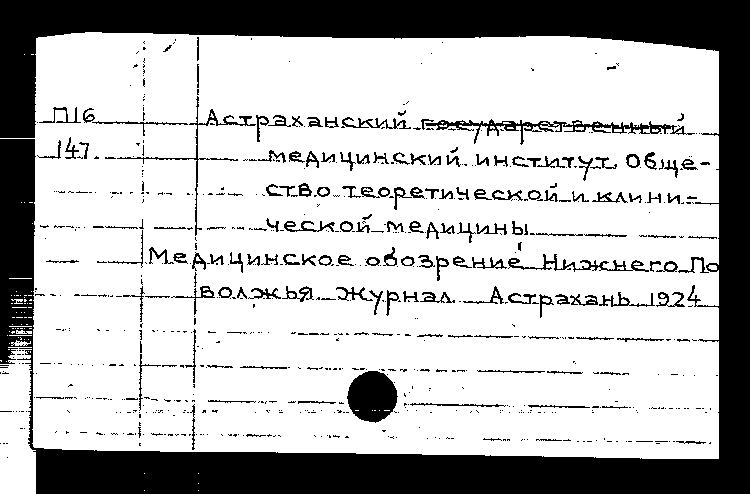 П16 Астраханский государственный
147 медицинский институт. Обще-
ство теоретической и клини-
ческой медицины
Медицинское обозрение Нижнего По
волжья журнал Астрахань 1924